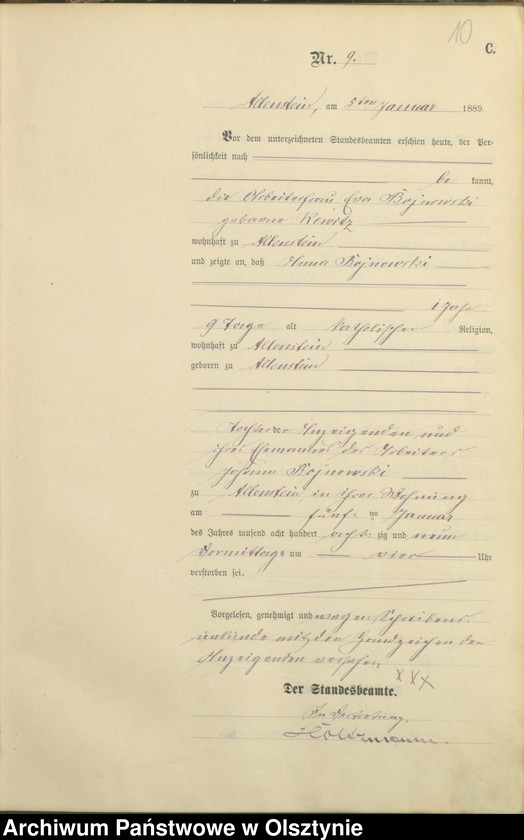 10
C.
Nr. 9.
Allenstein, am 5ten Januar 1889
Vor dem unterzeichneten Standesbeamten erschien heute, der Per-
sönlichkeit nach
be kannt,
die Arbeiterfrau Eva Bojnowski
geborene Rewitz
wohnhaft zu Allenstein
und zeigte an, daß Anna Bojnowski
1 Jahr
9 Tage alt katholischer Religion,
wohnhaft zu Allenstein
geboren zu Allenstein
Tochter der Anzeigenden und
ihres Ehemannes des Arbeiters
Johann Bojnowski
zu Allenstein in ihrer Wohnung
am fünf ten Januar
des Jahres tausend acht hundert acht zig und neun
Vormittags um vier Uhr
verstorben sei.
Vorgelesen, genehmigt und wegen Schreibens-
unkunde mit den Handzeichen der
Anzeigenden versehen
XXX
Der Standesbeamte.
In Vertretung.
Archiwum Państwowe w Olsztynie